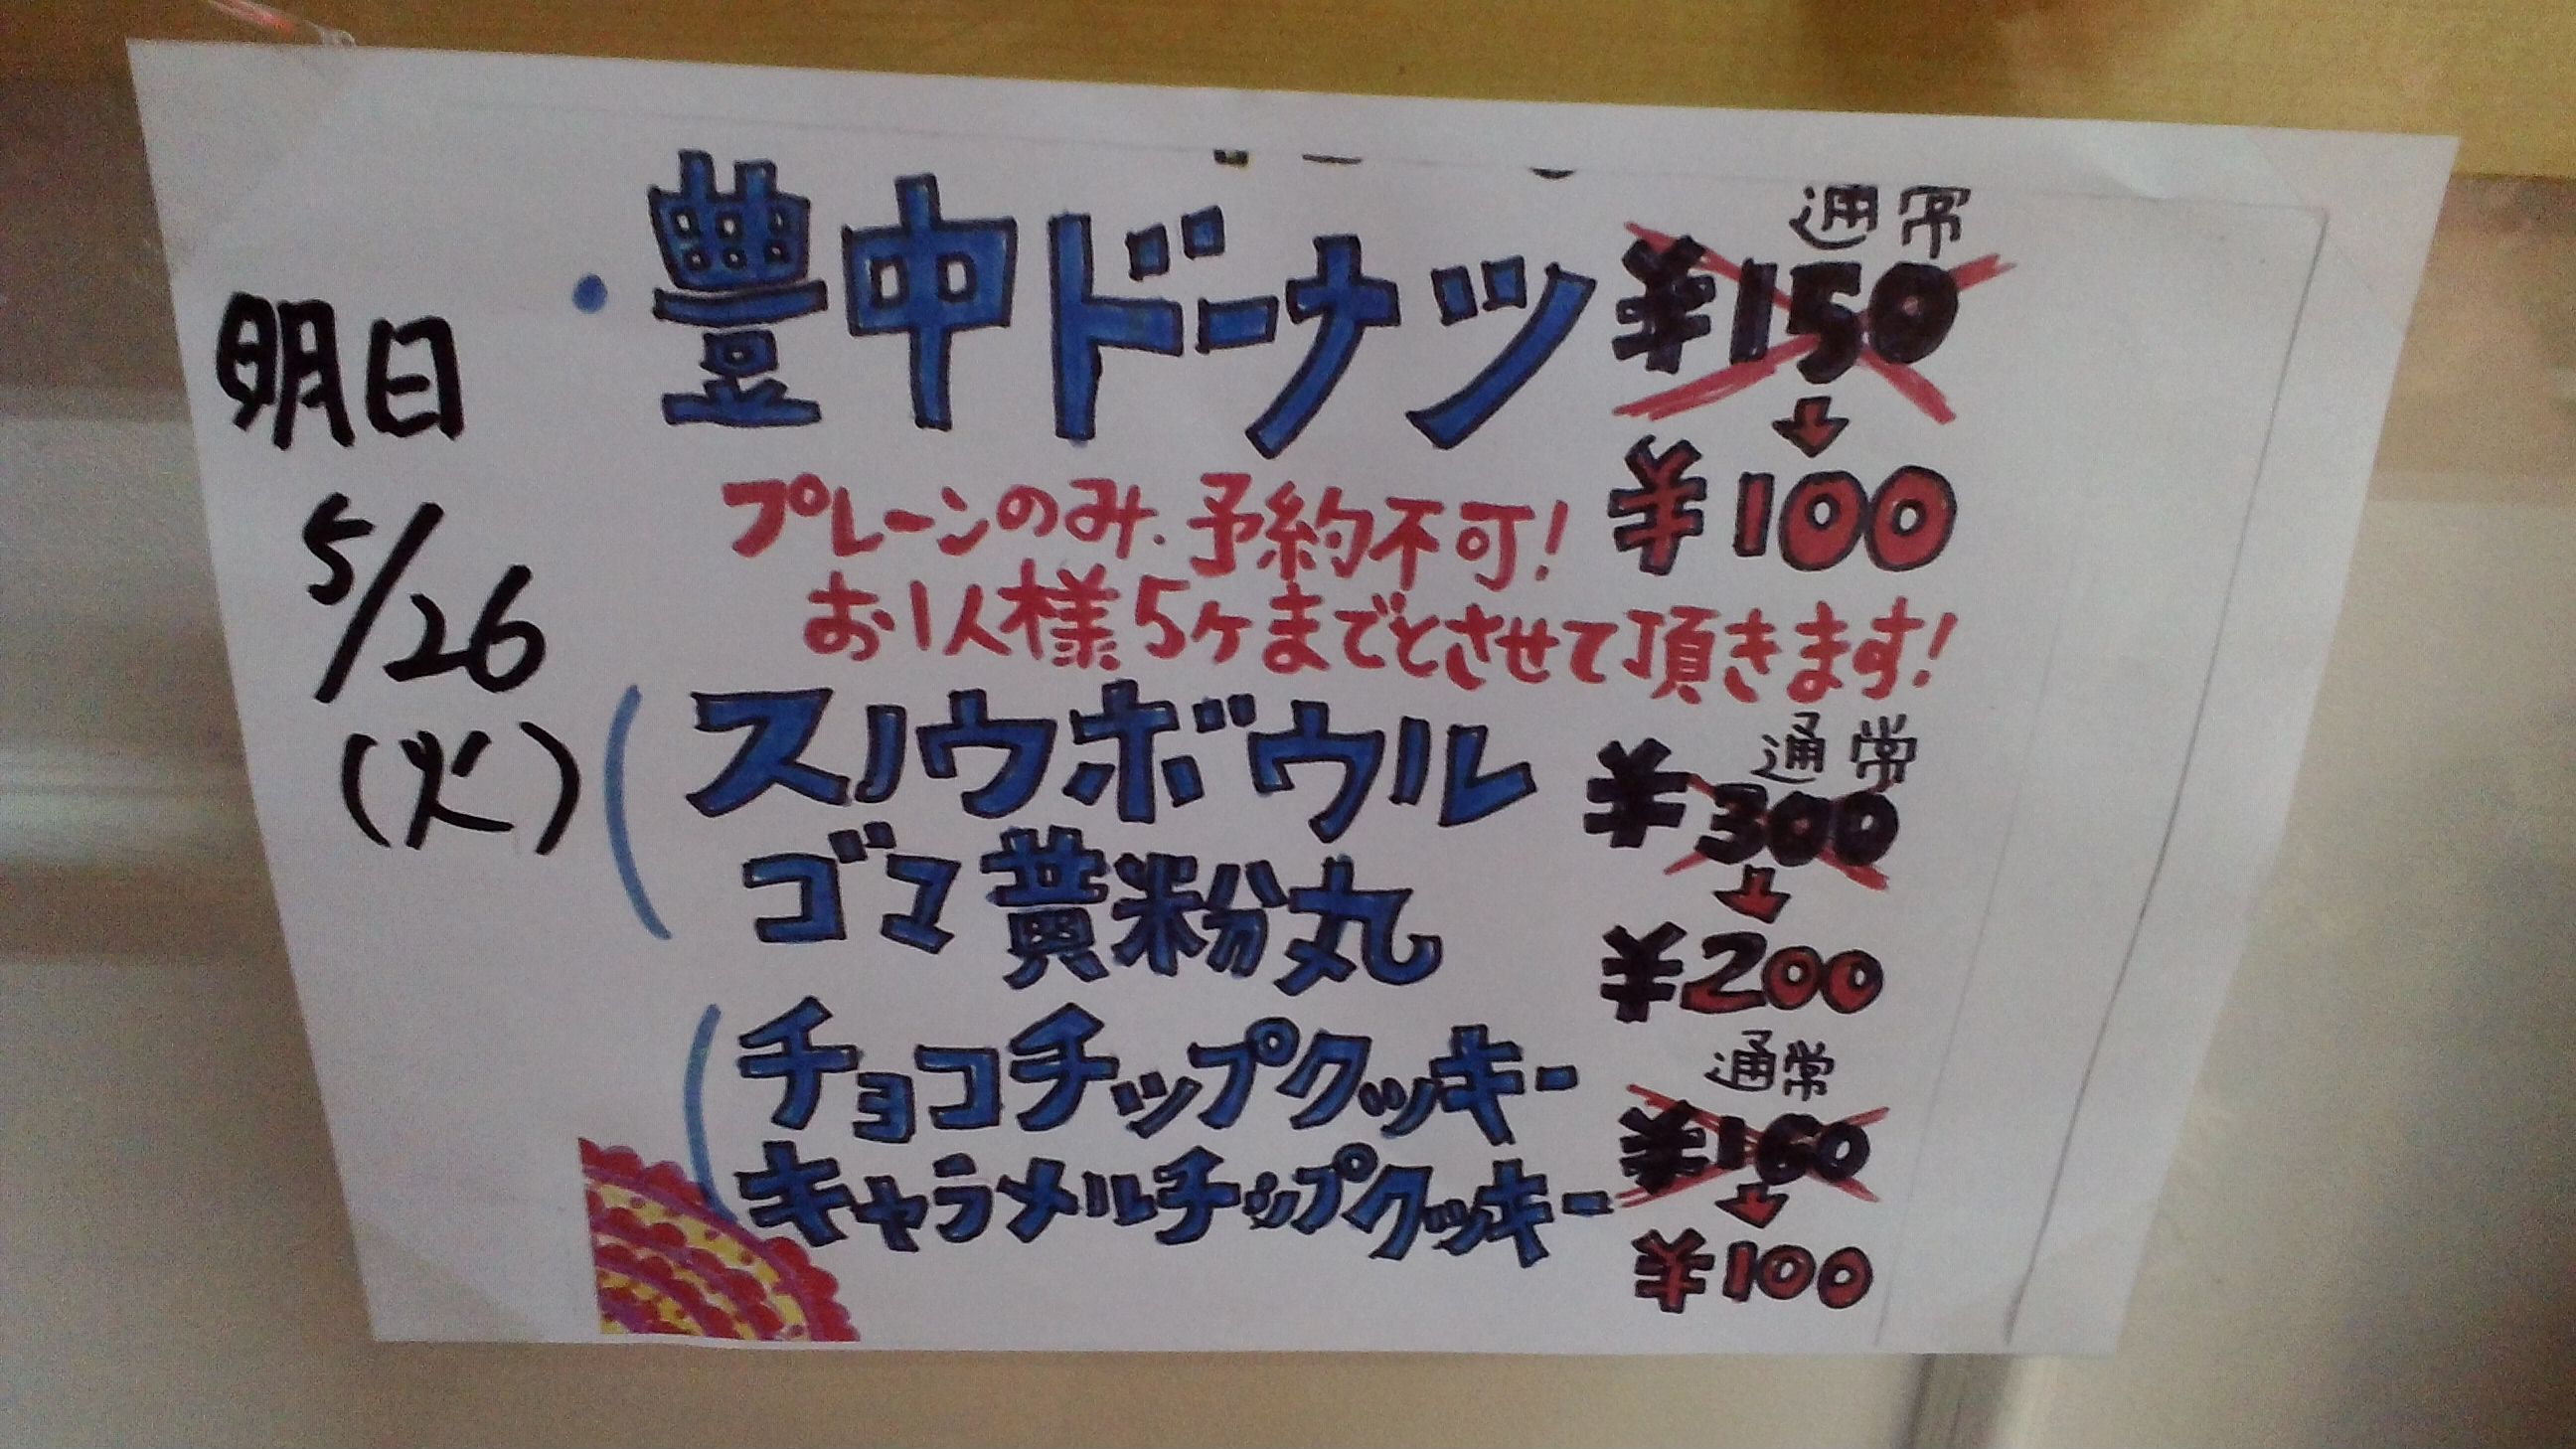 明日
5/26
(火)
・豊中ドーナツ
通常
¥150
↓
¥100
プレーンのみ.予約不可!
お1人様5ヶまでとさせて頂きます!
スノウボウル
ゴマ黄粉丸
通常
¥300
↓
¥200
チョコチップクッキー
キャラメルチップクッキー
通常
¥160
↓
¥100